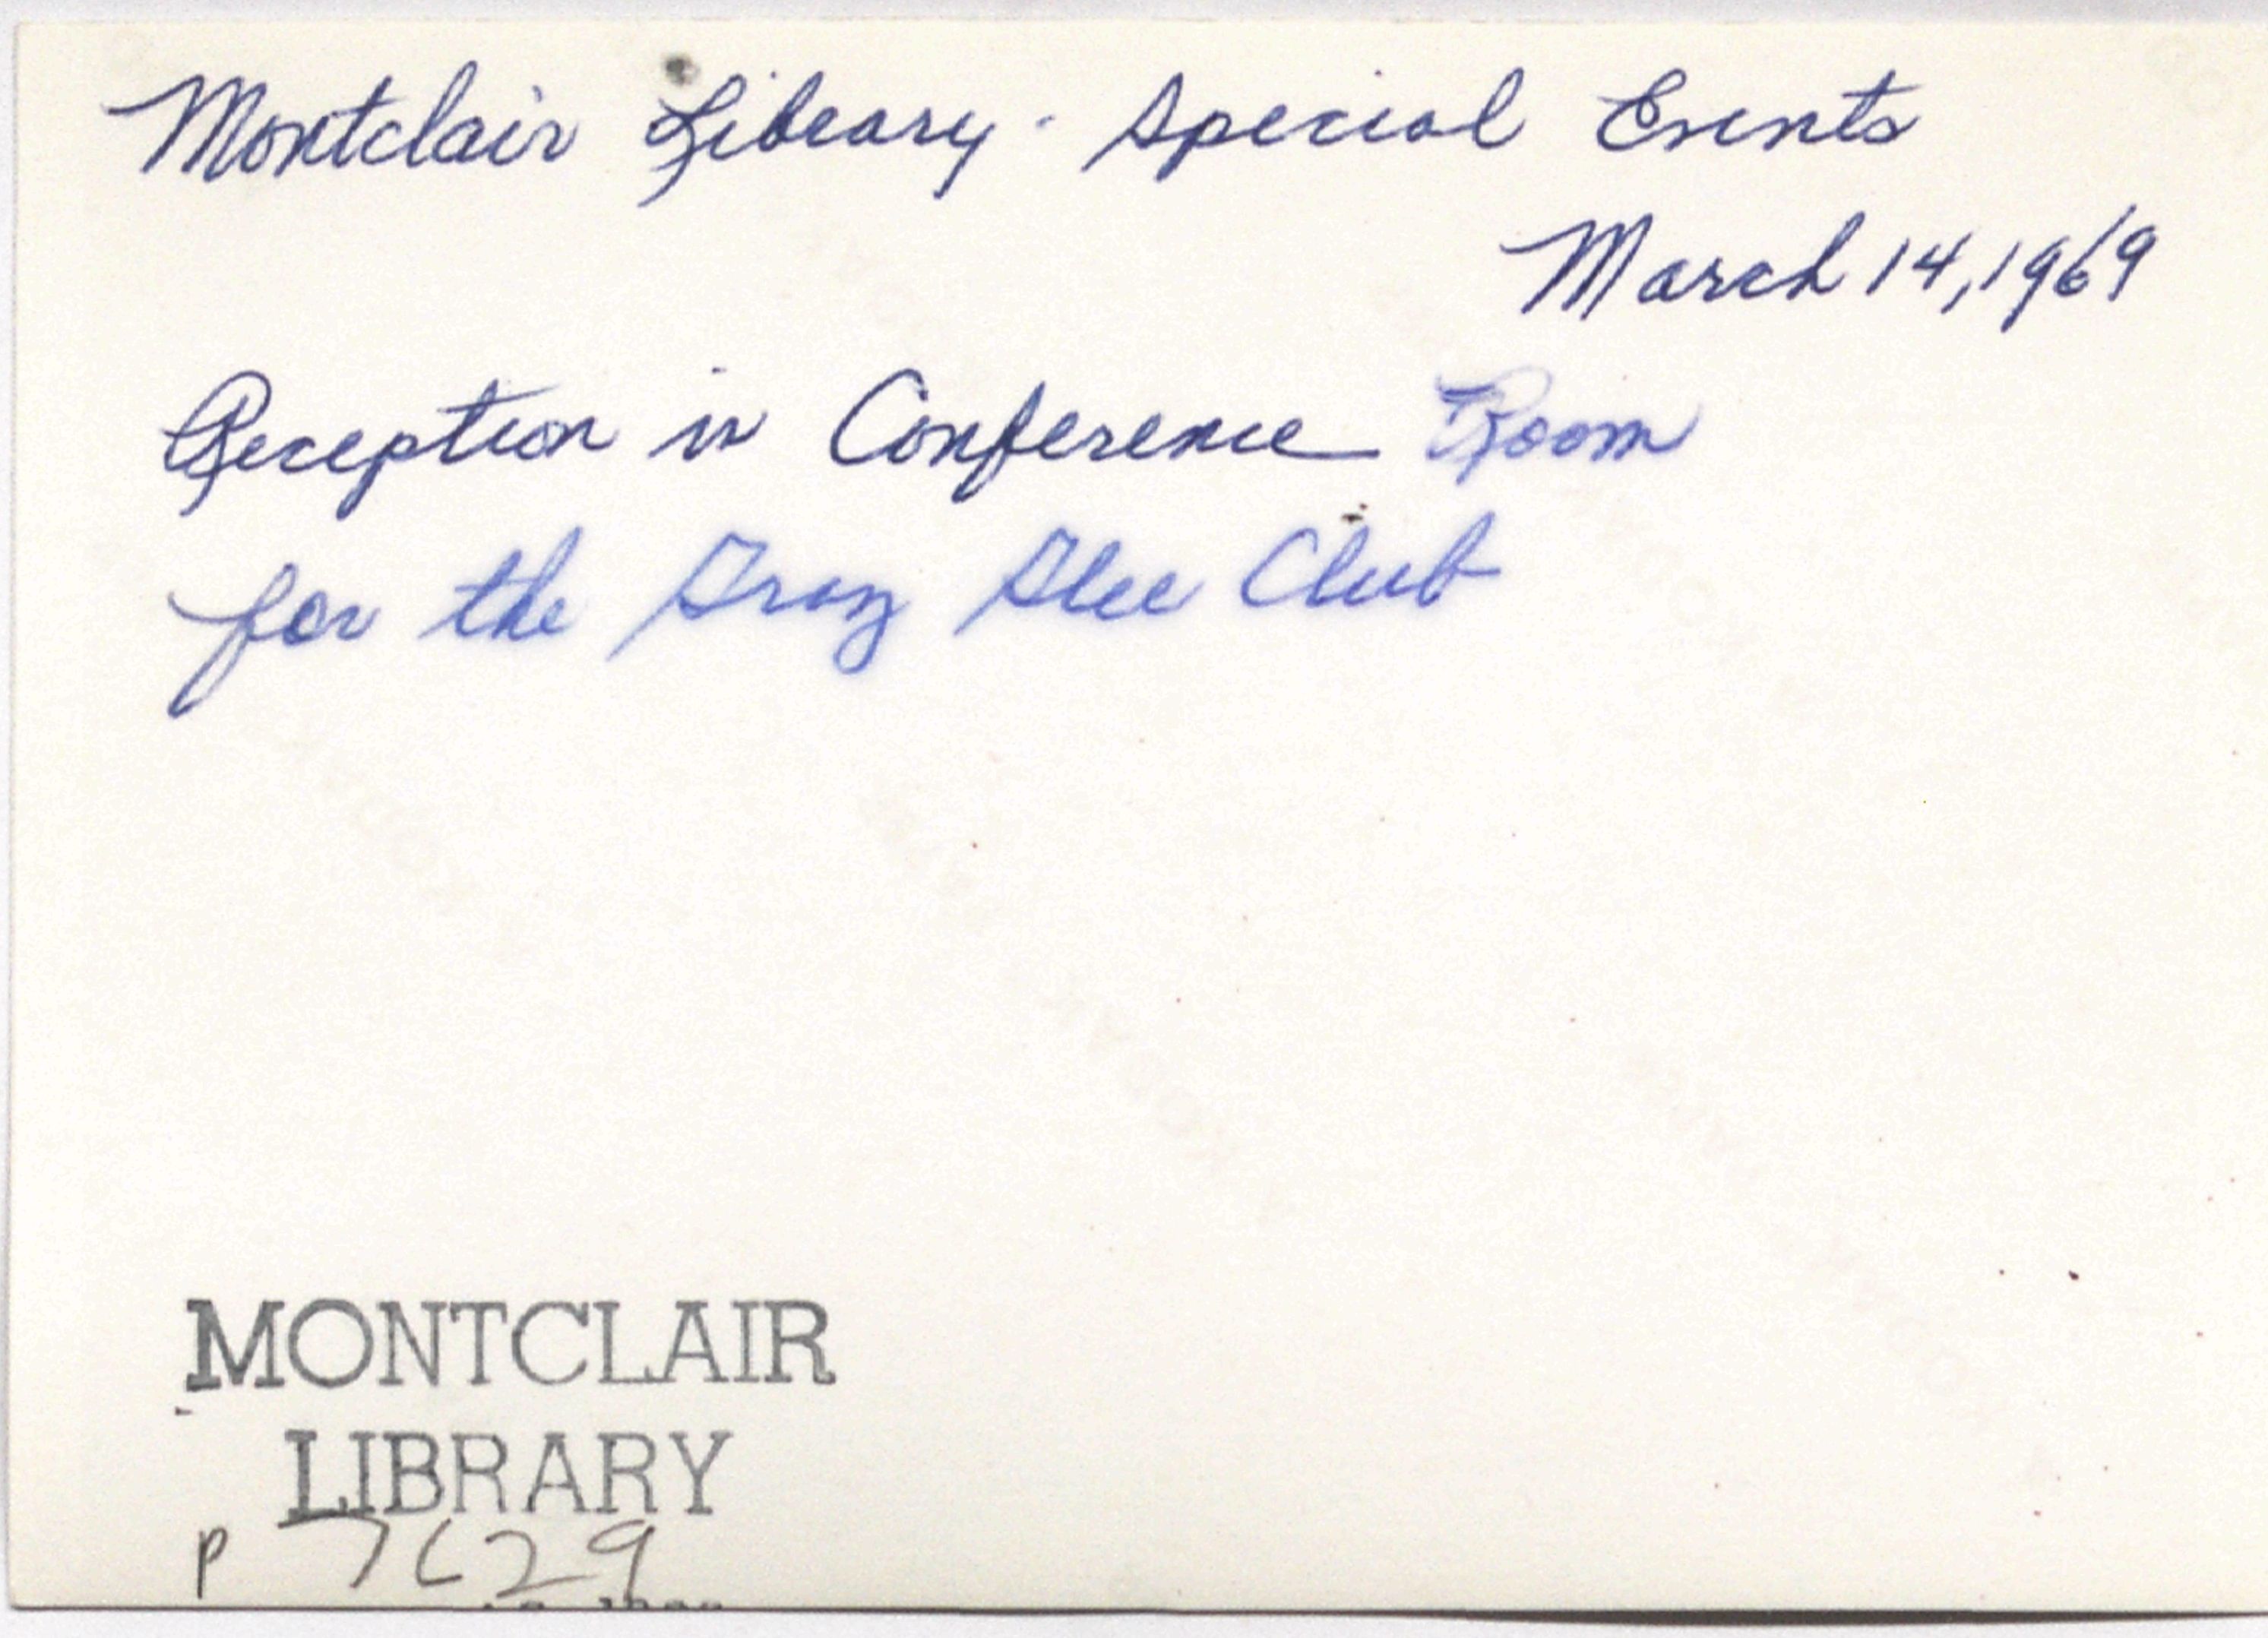 Montclair Library - Special Events
March 14, 1969
Reception in Conference Room
for the Graz Glee Club
MONTCLAIR
LIBRARY
P 7629